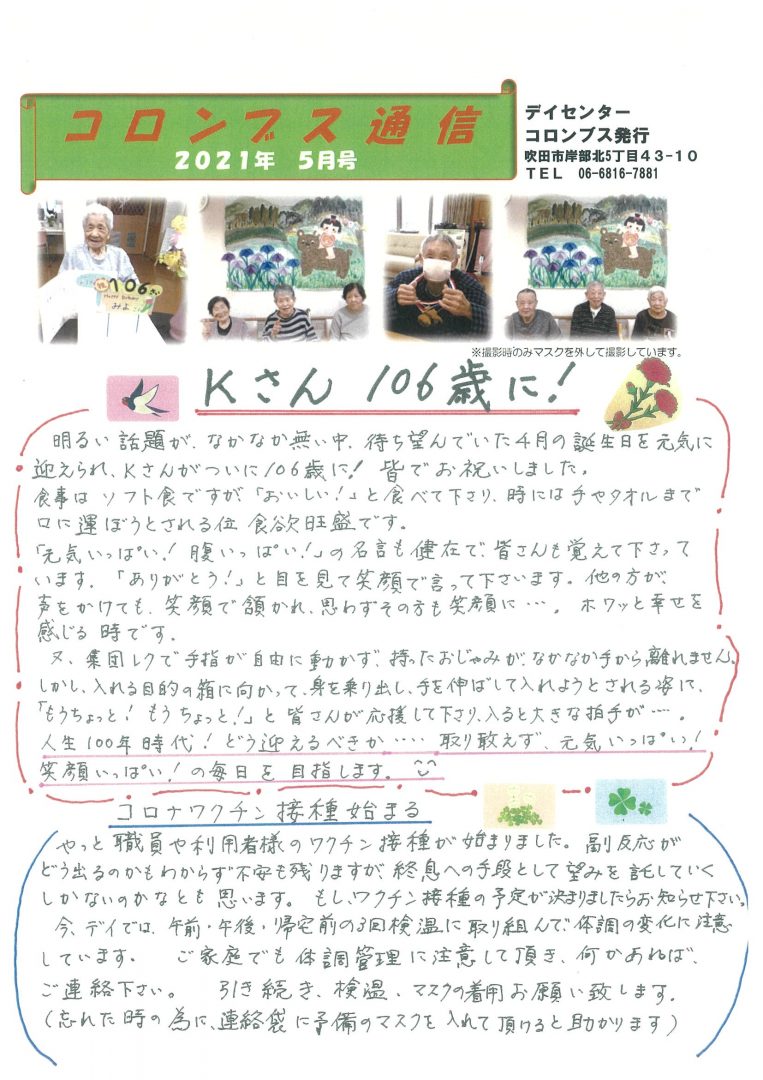 コロンブス通信
2021年 5月号
デイセンター
コロンブス発行
吹田市岸部北5丁目43-10
TEL 06-6816-7881
祝 106才
Happy Birthday
みよ
※撮影時のみマスクを外して撮影しています。
Kさん 106歳に!
明るい話題が、なかなか無い中、待ち望んでいた4月の誕生日を元気に
迎えられ、Kさんがついに106歳に! 皆でお祝いしました。
食事はソフト食ですが「おいしい!」と食べて下さり、時には手やタオルまで
口に運ぼうとされる位食欲旺盛です。
「元気いっぱい!腹いっぱい!」の名言も健在で、皆さんも覚えて下さって
います。「ありがとう!」と目を見て笑顔で言って下さいます。他の方が、
声をかけても、笑顔で頷かれ、思わずその方も笑顔に…。ホワッと幸せを
感じる時です。
又、集団レクで手指が自由に動かず、持ったおじゃみが、なかなか手から離れません。
しかし、入れる目的の箱に向かって、身を乗り出し、手を伸ばして入れようとされる姿に、
「もうちょっと!もうちょっと!」と皆さんが応援して下さり、入ると大きな拍手が…。
人生100年時代!どう迎えるべきか……取り敢えず、元気いっぱい!
笑顔いっぱい!の毎日を目指します。
コロナワクチン接種始まる
やっと職員や利用者様のワクチン接種が始まりました。副反応が
どう出るのかもわからず不安も残りますが、終息への手段として望みを託していく
しかないのかなとも思います。もし、ワクチン接種の予定が決まりましたらお知らせ下さい。
今、デイでは、午前・午後・帰宅前の3回検温に取り組んで、体調の変化に注意
しています。ご家庭でも体調管理に注意して頂き、何かあれば、
ご連絡下さい。引き続き、検温、マスクの着用お願い致します。
(忘れた時の為に、連絡袋に予備のマスクを入れて頂けると助かります)